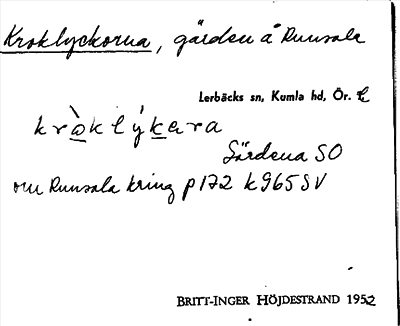 Kroklyckorna, gärden å Runsala
Lerbäcks sn, Kumla hd, Ör. l
kròklýkara
Gärdena SO
om Runsala kring p172 k965SV
BRITT-INGER HÖJDESTRAND 1952